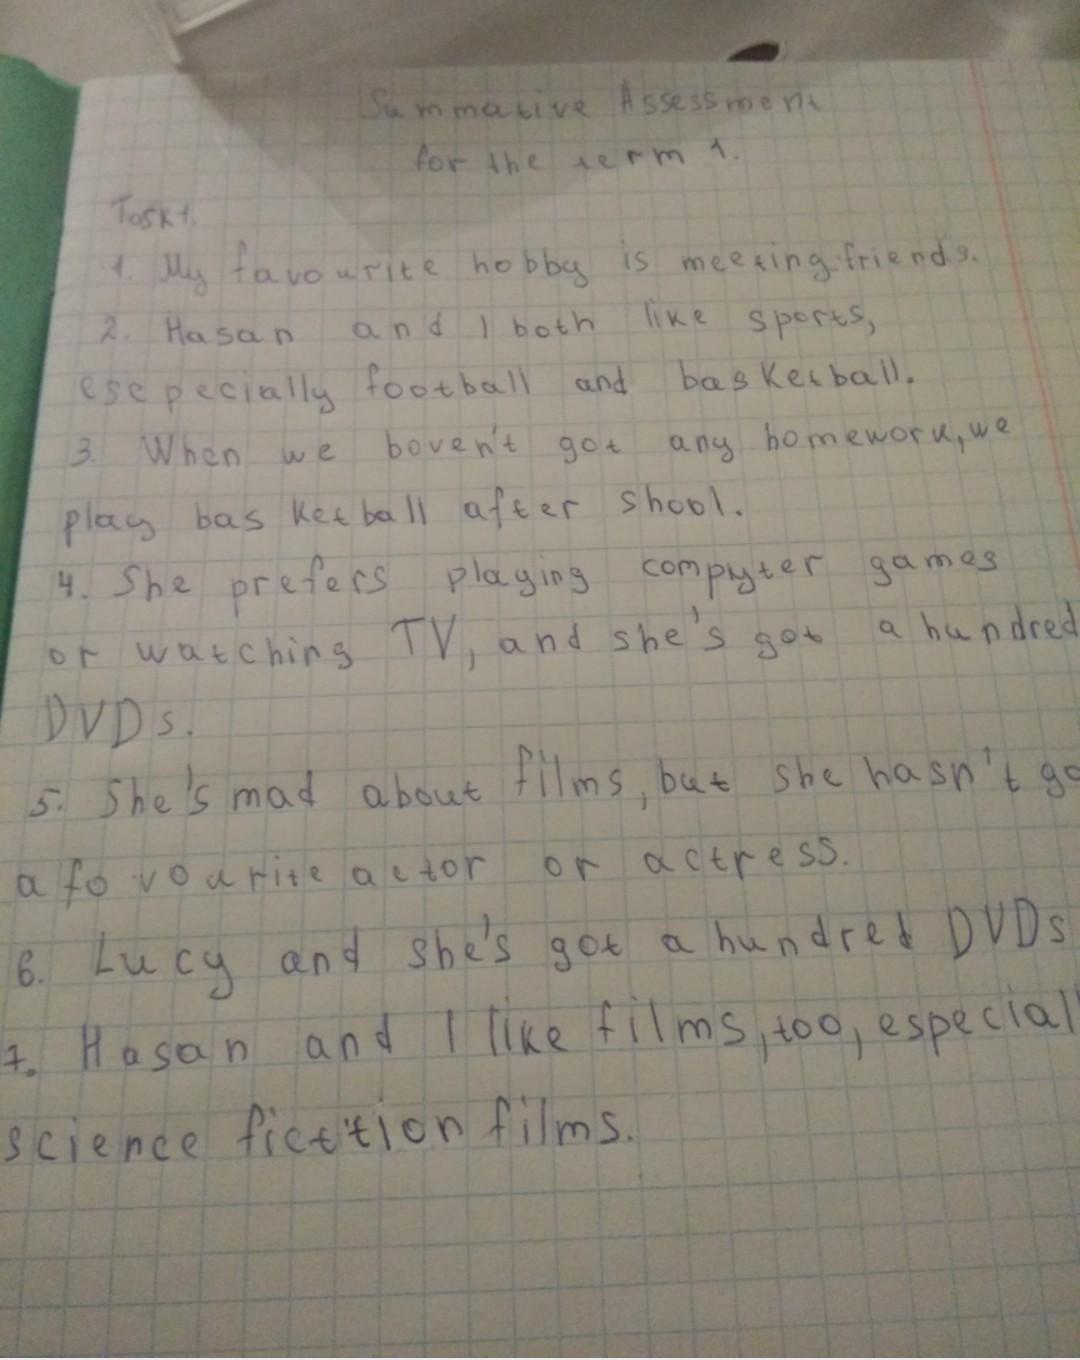 Summative Assessment
for the term 1.
Task 1.
1. My favourite hobby is meeting friends.
2. Hasan and I both like sports,
esepecially football and basketball.
3. When we boven't got any homework, we
play basketball after shool.
4. She prefers playing compyter games
or watching TV, and she's got a hundred
DVDs.
5. She's mad about films, but she hasn't go
a fovourite actor or actress.
6. Lucy and she's got a hundred DVDs
7. Hasan and I like films, too, especial
science fiction films.